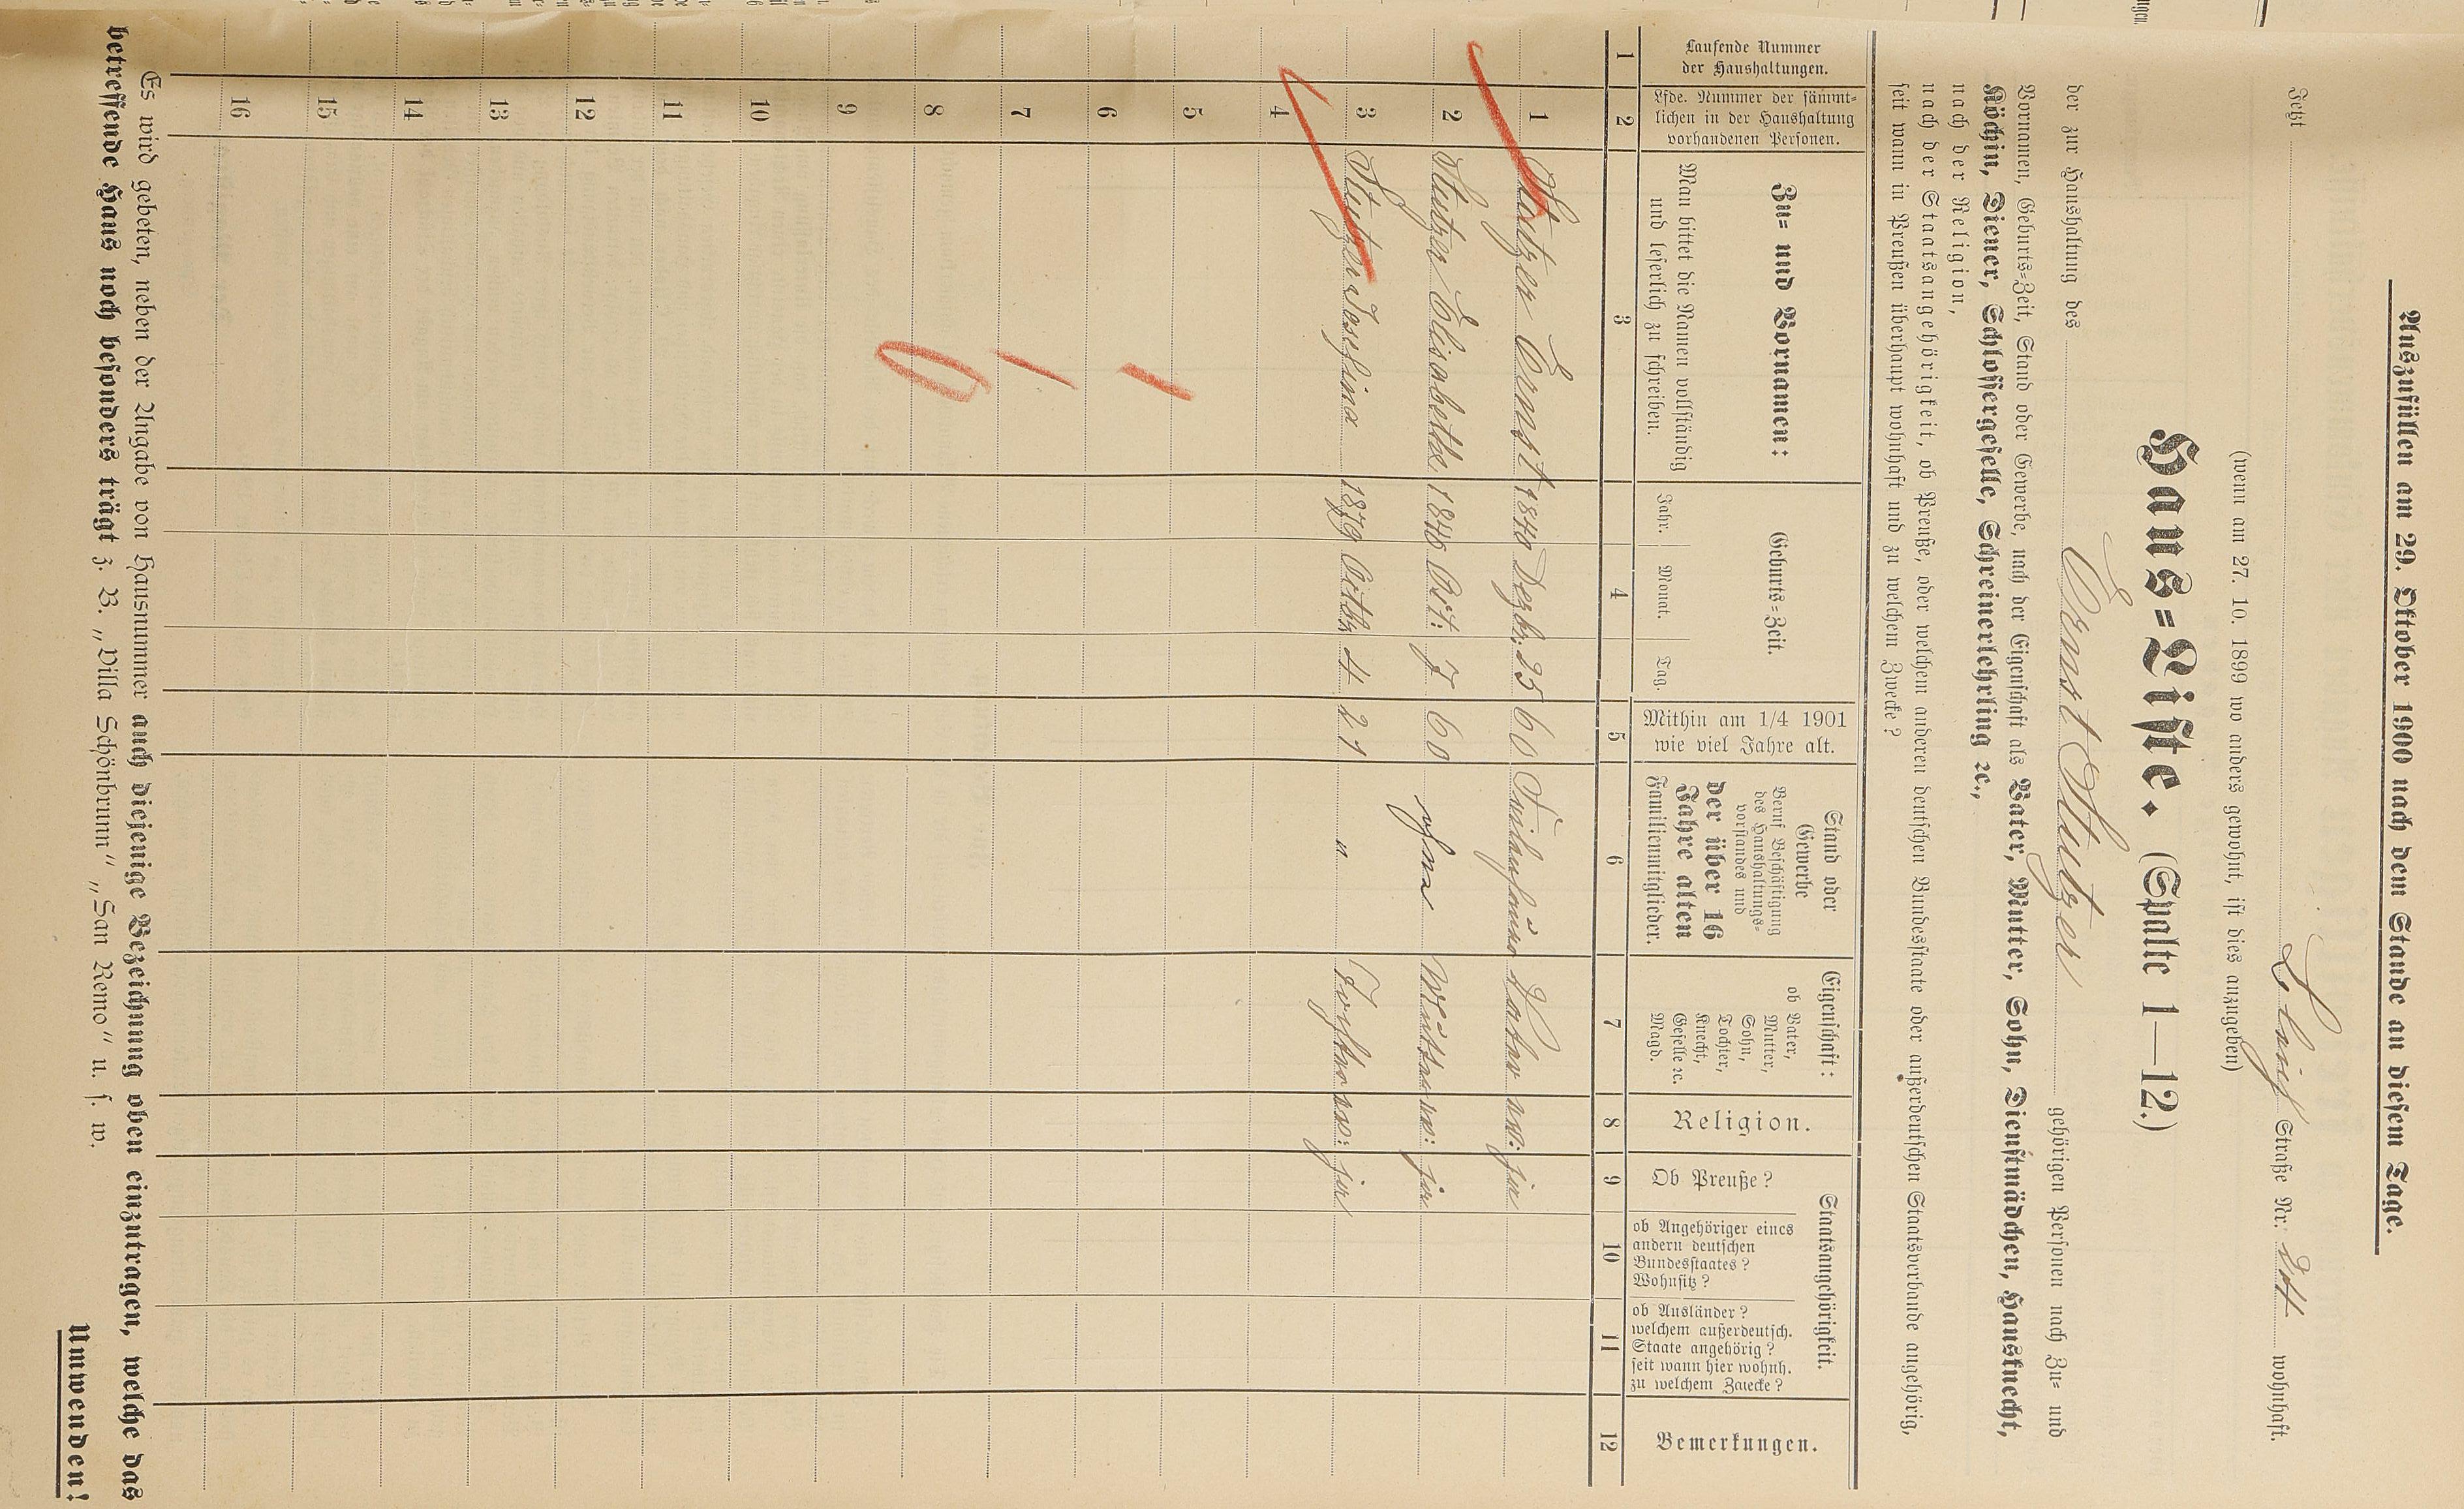 Auszufüllen am 29. Oktober 1900 nach dem Stande an diesem Tage.
Jetzt Straße Nr. wohnhaft.
(wenn am 27. 10. 1899 wo anders gewohnt, ist dies anzugeben)
Haus=Liste. (Spalte 1—12.)
der zur Haushaltung des Ernst Stutzer gehörigen Personen nach Zu= und
Vornamen, Geburts=Zeit, Stand oder Gewerbe, nach der Eigenschaft als Vater, Mutter, Sohn, Dienstmädchen, Hausknecht,
Köchin, Diener, Schlossergeselle, Schreinerlehrling ꝛc.,
nach der Religion,
nach der Staatsangehörigkeit, ob Preuße, oder welchem anderen deutschen Bundesstaate oder außerdeutschen Staatsverbande angehörig,
seit wann in Preußen überhaupt wohnhaft und zu welchem Zwecke?
Laufende Nummer
der Haushaltungen.
Lfde. Nummer der sämmt=
lichen in der Haushaltung
vorhandenen Personen.
Zu= und Vornamen:
Man bittet die Namen vollständig
und leserlich zu schreiben.
Geburts=Zeit.
Jahr. Monat. Tag.
Mithin am 1/4 1901
wie viel Jahre alt.
Stand oder
Gewerbe
Beruf Beschäftigung
des Haushaltungs=
vorstandes und
der über 16
Jahre alten
Familienmitglieder.
Eigenschaft:
ob Vater,
Mutter,
Sohn,
Tochter,
Knecht,
Geselle ꝛc.
Magd.
Religion.
Staatsangehörigkeit.
Ob Preuße?
ob Angehöriger eines
andern deutschen
Bundesstaates?
Wohnsitz?
ob Ausländer?
welchem außerdeutsch.
Staate angehörig?
seit wann hier wohnh.
zu welchem Zwecke?
Bemerkungen.
1 2 3 4 5 6 7 8 9 10 11 12
1 Stutzer Ernst 1840 Dezbr. 25 60 Vater ev. ja
2 Stutzer Elisabeth 1840 Okt. 7 60 ohne Mutter ev: ja
3 Stutzer Josefina 1879 Octbr 4 21 " Tochter ev: ja
4
5
6
7
8
9
10
11
12
13
14
15
16
Es wird gebeten, neben der Angabe von Hausnummer auch diejenige Bezeichnung oben einzutragen, welche das
betreffende Haus noch besonders trägt z. B. „Villa Schönbrunn“ „San Remo“ u. s. w.
Umwenden!